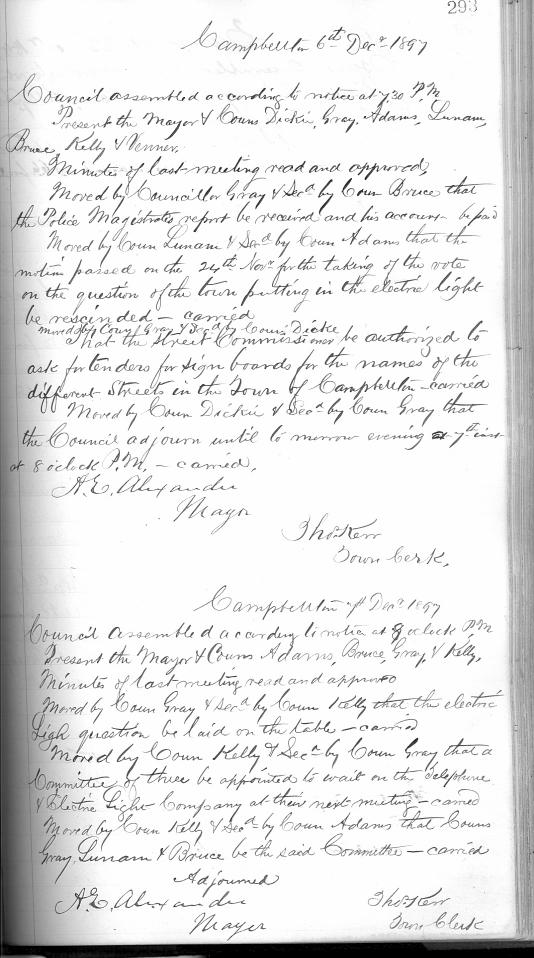 293
Campbellton 6th Decr 1897
Council assembled according to notice at 7.30 P.M.
Present the Mayor & Couns Dickie, Gray, Adams, Lunam,
Bruce, Kelly & Venner,
Minutes of last meeting read and approved,
Moved by Councillor Gray & Secd by Coun Bruce that
the Police Magistrates report be received and his account be paid
Moved by Coun Lunam & Secd by Coun Adams that the
motion passed on the 24th Novr for the taking of the vote
on the question of the town putting in the electric light
be rescinded – carried
moved by Coun Gray & Secd by Coun Dickie
That the Street Commissioner be authorized to
ask for tenders for sign boards for the names of the
different Streets in the Town of Campbellton – carried
Moved by Coun Dickie & Secd by Coun Gray that
the Council adjourn until to morrow evening 7th inst
at 8 oclock P.M. – carried,
A.E. Alexander
Mayor
Thos Kerr
Town Clerk.
Campbellton 7th Decr 1897
Council assembled according to notice at 8 oclock P.M
Present the Mayor & Couns Adams, Bruce, Gray, & Kelly,
Minutes of last meeting read and approved
Moved by Coun Gray & Secd by Coun Kelly that the electric
Ligh question be laid on the table – carried
Moved by Coun Kelly & Secd by Coun Gray that a
Committee of three be appointed to wait on the Telephone
& Electric Light Company at their next meeting – carried
Moved by Coun Kelly & Secd by Coun Adams that Couns
Gray, Lunam & Bruce be the said Committee – carried
Adjourned
A.E. Alexander
Mayor
Thos Kerr
Town Clerk